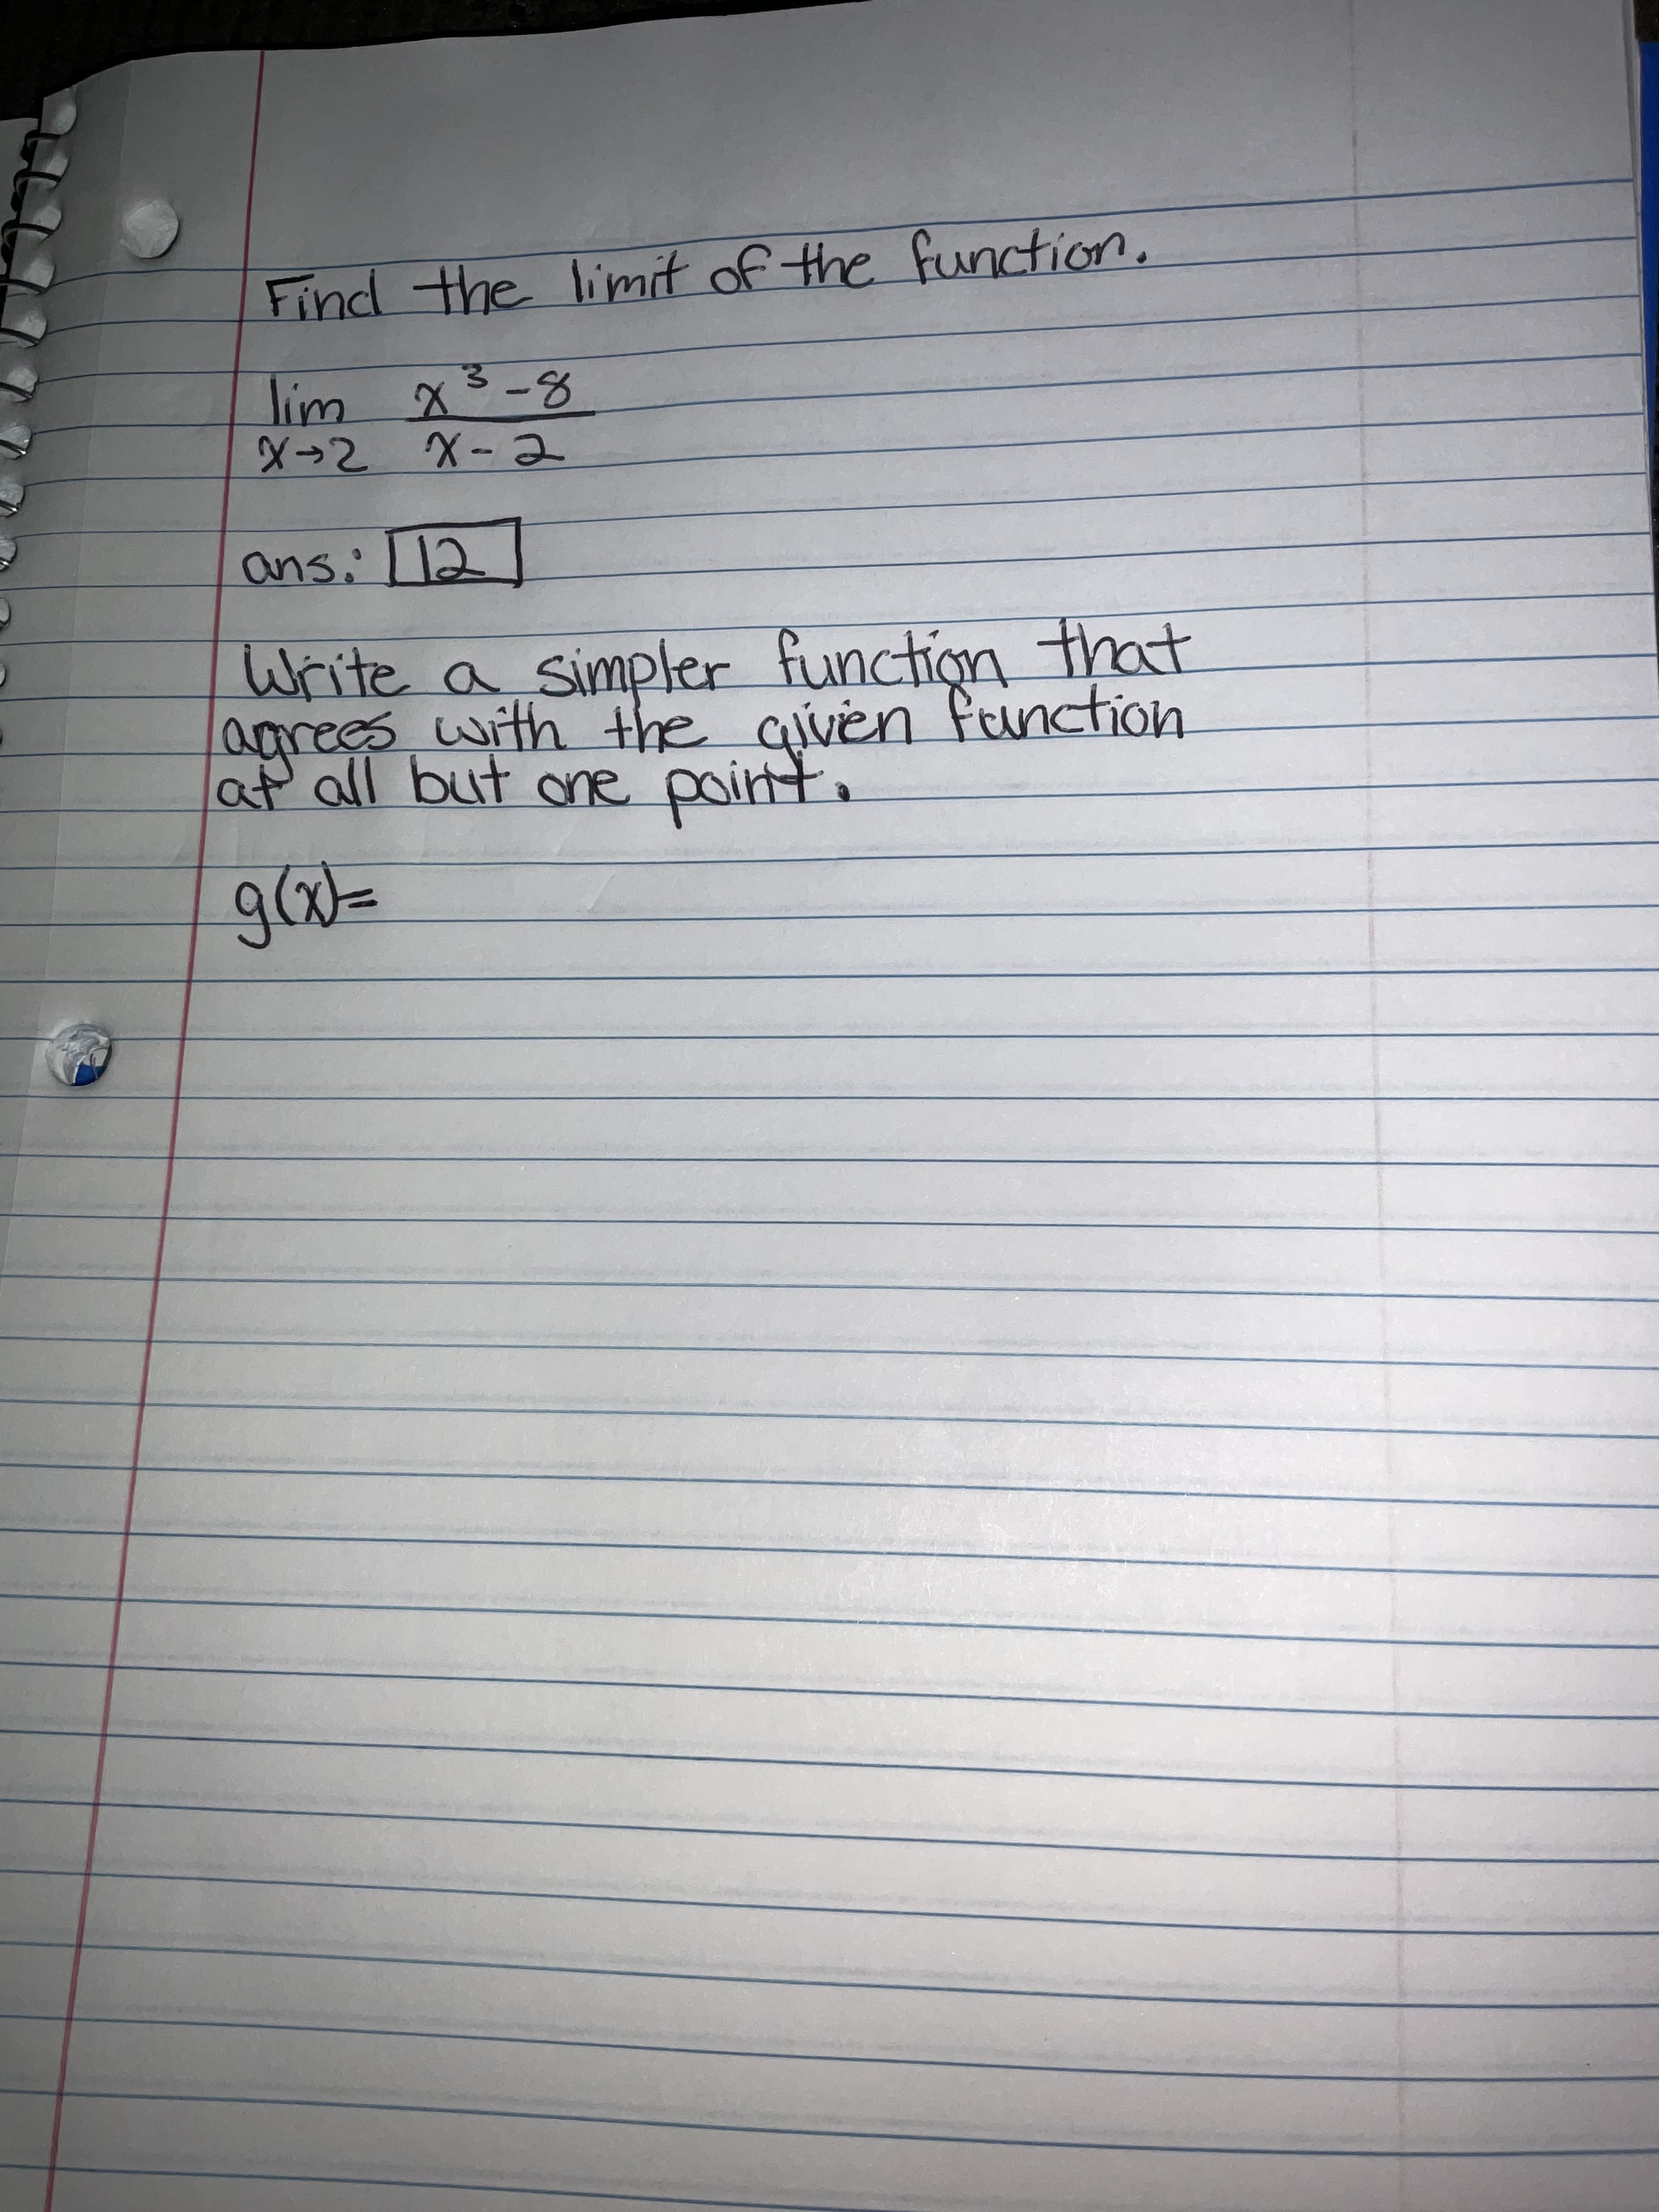 Find the limit of the function.
lim x³-8
x→2 x-2
ans: 12
Write a simpler function that
agrees with the given function
at all but one point.
g(x)=